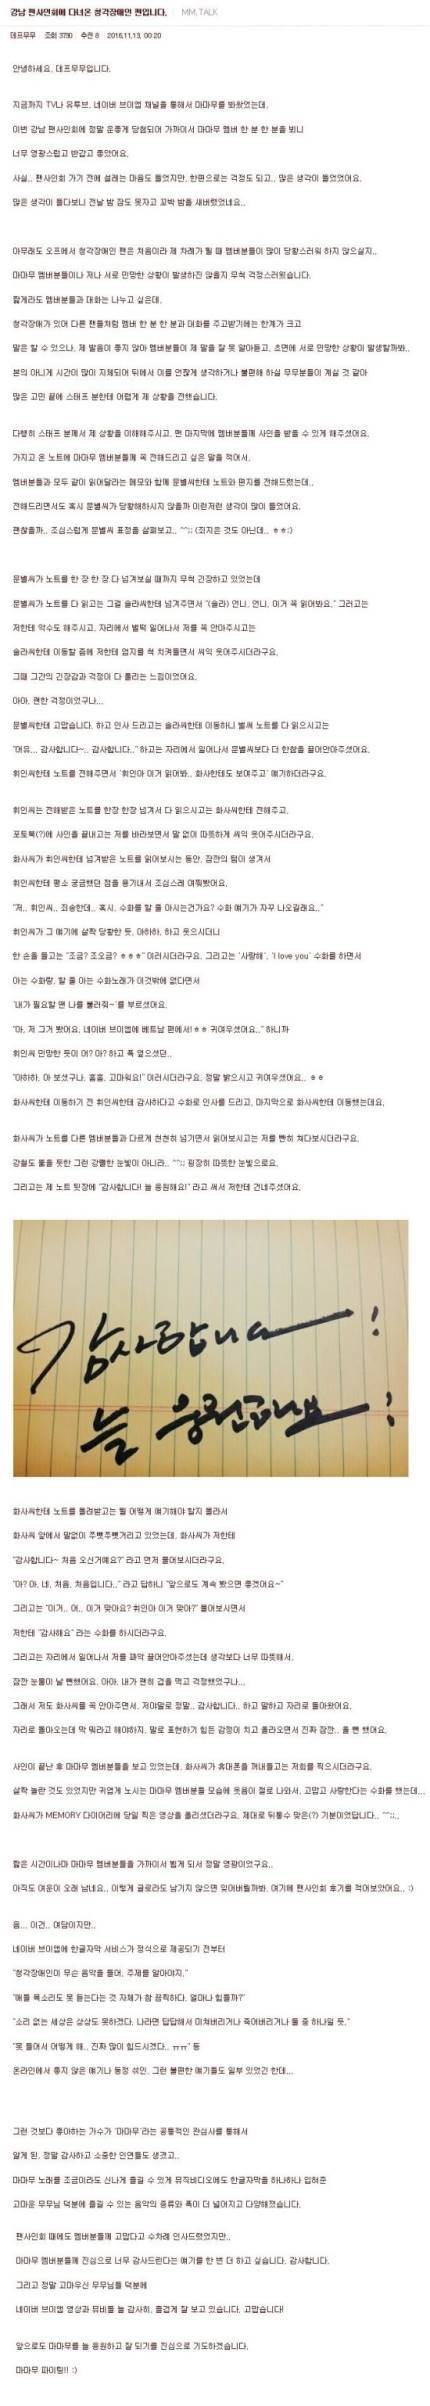 강남 팬사인회에 다녀온 청각장애인 팬입니다. | MM.TALK
데프무무 조회 3790 추천 8 2016.11.13. 00:20
안녕하세요. 데프무무입니다.
지금까지 TV나 유투브, 네이버 브이앱 채널을 통해서 마마무를 봐왔었는데,
이번 강남 팬사인회에 정말 운좋게 당첨되어 가까이서 마마무 멤버 한 분 한 분을 뵈니
너무 영광스럽고 반갑고 좋았어요.
사실.. 팬사인회 가기 전에 설레는 마음도 들었지만, 한편으로는 걱정도 되고.. 많은 생각이 들었었어요.
많은 생각이 들다보니 전날 밤 잠도 못자고 꼬박 밤을 새버렸었네요..
아무래도 오프에서 청각장애인 팬은 처음이라 제 차례가 될 때 멤버분들이 많이 당황스러워 하지 않으실지..
마마무 멤버분들이나 저나 서로 민망한 상황이 발생하진 않을지 무척 걱정스러웠습니다.
짧게라도 멤버분들과 대화는 나누고 싶은데,
청각장애가 있어 다른 팬들처럼 멤버 한 분 한 분과 대화를 주고받기에는 한계가 크고
말은 할 수 있으나, 제 발음이 좋지 않아 멤버분들이 제 말을 잘 못 알아듣고, 초면에 서로 민망한 상황이 발생할까봐..
본의 아니게 시간이 많이 지체되어 뒤에서 이를 언짢게 생각하거나 불편해 하실 무무분들이 계실 것 같아
많은 고민 끝에 스태프 분한테 어렵게 제 상황을 전했습니다.
다행히 스태프 분께서 제 상황을 이해해주시고, 맨 마지막에 멤버분들께 사인을 받을 수 있게 해주셨어요.
가지고 온 노트에 마마무 멤버분들께 꼭 전해드리고 싶은 말을 적어서,
멤버분들과 모두 같이 읽어달라는 메모와 함께 문별씨한테 노트와 편지를 전해드렸는데..
전해드리면서도 혹시 문별씨가 당황해하시지 않을까 이런저런 생각이 많이 들었어요.
괜찮을까.. 조심스럽게 문별씨 표정을 살펴보고.. ^^;; (죄지은 것도 아닌데.. ㅎㅎ;)
문별씨가 노트를 한 장 한 장 다 넘겨보실 때까지 무척 긴장하고 있었는데
문별씨가 노트를 다 읽고는 그걸 솔라씨한테 넘겨주면서 "(솔라) 언니, 언니, 이거 꼭 읽어봐요." 그러고는
저한테 악수도 해주시고, 자리에서 벌떡 일어나서 저를 꼭 안아주시고는
솔라씨한테 이동할 즘에 저한테 엄지를 척 치켜들면서 씨익 웃어주시더라구요.
그때 그간의 긴장감과 걱정이 다 풀리는 느낌이었어요.
아아, 괜한 걱정이었구나...
문별씨한테 고맙습니다. 하고 인사 드리고는 솔라씨한테 이동하니 벌써 노트를 다 읽으시고는
"어유... 감사합니다~.. 감사합니다.." 하고는 자리에서 일어나서 문별씨보다 더 한참을 끌어안아주셨어요.
휘인씨한테 노트를 전해주면서 '휘인아 이거 읽어봐.. 화사한테도 보여주고' 얘기하더라구요.
휘인씨는 전해받은 노트를 한장 한장 넘겨서 다 읽으시고는 화사씨한테 전해주고,
포토북(?)에 사인을 끝내고는 저를 바라보면서 말 없이 따뜻하게 씨익 웃어주시더라구요.
화사씨가 휘인씨한테 넘겨받은 노트를 읽어보시는 동안, 잠깐의 텀이 생겨서
휘인씨한테 평소 궁금했던 점을 용기내서 조심스레 여쭤봤어요.
"저.. 휘인씨.. 죄송한데.. 혹시, 수화를 할 줄 아시는건가요? 수화 얘기가 자꾸 나오길래요.."
휘인씨가 그 얘기에 살짝 당황한 듯, 아하하, 하고 웃으시더니
한 손을 들고는 "조금? 조오금? ㅎㅎㅎ" 이러시더라구요. 그러고는 '사랑해', 'I love you' 수화를 하면서
아는 수화랑, 할 줄 아는 수화노래가 이것밖에 없다면서
'내가 필요할 땐 나를 불러줘~'를 부르셨어요.
"아, 저 그거 봤어요. 네이버 브이앱에 베트남 편에서! ㅎㅎ 귀여우셨어요.." 하니까
휘인씨 민망한 듯이 어? 아? 하고 폭 엎으셨던..
"아하하, 아 보셨구나, 흘흘. 고마워요!" 이러시더라구요. 정말 밝으시고 귀여우셨어요.. ㅎㅎ
화사씨한테 이동하기 전 휘인씨한테 감사하다고 수화로 인사를 드리고, 마지막으로 화사씨한테 이동했는데요.
화사씨가 노트를 다른 멤버분들과 다르게 천천히 넘기면서 읽어보시고는 저를 빤히 쳐다보시더라구요.
강철도 뚫을 듯한 그런 강렬한 눈빛이 아니라.. ^^;; 굉장히 따뜻한 눈빛으로요.
그리고는 제 노트 뒷장에 "감사합니다! 늘 응원해요!" 라고 써서 저한테 건네주셨어요.
감사합니다!
늘 응원해요!
화사씨한테 노트를 돌려받고는 뭘 어떻게 얘기해야 할지 몰라서
화사씨 앞에서 말없이 주뼛주뼛거리고 있었는데, 화사씨가 저한테
"감사합니다~ 처음 오신거예요?" 라고 먼저 물어보시더라구요.
"아? 아, 네. 처음, 처음입니다.." 라고 답하니 "앞으로도 계속 봤으면 좋겠어요~"
그리고는 "이거.. 어.. 이거 맞아요? 휘인아 이거 맞아?" 물어보시면서
저한테 "감사해요" 라는 수화를 하시더라구요.
그리고는 자리에서 일어나서 저를 꽈악 끌어안아주셨는데 생각보다 너무 따뜻해서,
잠깐 눈물이 날 뻔했어요. 아아, 내가 괜히 겁을 먹고 걱정했었구나...
그래서 저도 화사씨를 꼭 안아주면서, 저야말로 정말.. 감사합니다.. 하고 말하고 자리로 돌아왔어요.
자리로 돌아오는데 막 뭐라고 해야하지, 말로 표현하기 힘든 감정이 치고 올라오면서 진짜 잠깐.. 울 뻔 했어요.
사인이 끝난 후 마마무 멤버분들을 보고 있었는데, 화사씨가 휴대폰을 꺼내들고는 저희를 찍으시더라구요.
살짝 놀란 것도 있었지만 귀엽게 노시는 마마무 멤버분들 모습에 웃음이 절로 나와서, 고맙고 사랑한다는 수화를 했는데...
화사씨가 MEMORY 다이어리에 당일 찍은 영상을 올리셨더라구요. 제대로 뒤통수 맞은(?) 기분이었답니다.. ^^;;..
짧은 시간이나마 마마무 멤버분들을 가까이서 뵙게 되서 정말 영광이었구요..
아직도 여운이 오래 남네요.. 이렇게 글로라도 남기지 않으면 잊어버릴까봐, 여기에 팬사인회 후기를 적어보았어요.. :)
음... 이건.. 여담이지만..
네이버 브이앱에 한글자막 서비스가 정식으로 제공되기 전부터
"청각장애인이 무슨 음악을 들어. 주제를 알아야지."
"애들 목소리도 못 듣는다는 것 자체가 참 끔찍하다. 얼마나 힘들까?"
"소리 없는 세상은 상상도 못하겠다. 나라면 답답해서 미쳐버리거나 죽어버리거나 둘 중 하나일 듯."
"못 들어서 어떻게 해.. 진짜 많이 힘드시겠다.. ㅠㅠ" 등
온라인에서 좋지 않은 얘기나 동정 섞인, 그런 불편한 얘기들도 일부 있었긴 한데...
그런 것보다 좋아하는 가수가 '마마무'라는 공통적인 관심사를 통해서
알게 된, 정말 감사하고 소중한 인연들도 생겼고..
마마무 노래를 조금이라도 신나게 즐길 수 있게 뮤직비디오에도 한글자막을 하나하나 입혀준
고마운 무무님 덕분에 즐길 수 있는 음악의 종류와 폭이 더 넓어지고 다양해졌습니다.
팬사인회 때에도 멤버분들께 고맙다고 수차례 인사드렸었지만..
마마무 멤버분들께 진심으로 너무 감사드린다는 얘기를 한 번 더 하고 싶습니다. 감사합니다.
그리고 정말 고마우신 무무님들 덕분에
네이버 브이앱 영상과 뮤비를 늘 감사히, 즐겁게 잘 보고 있습니다. 고맙습니다!
앞으로도 마마무를 늘 응원하고 잘 되기를 진심으로 기도하겠습니다.
마마무 파이팅!! :)